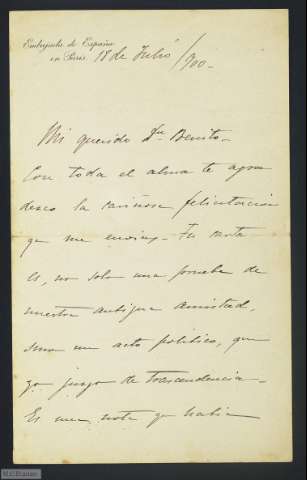 Embajada de España
en París
18 de Julio /900.
Mi querido Dn Benito.
Con toda el alma te agra
desco la cariñosa felicitacion
qe me envias. Tu carta
es, no solo una prueba de
nuestra antigua amistad,
sino un acto politico, que
yo juzgo de trascendencia.
Es una nota qe habia